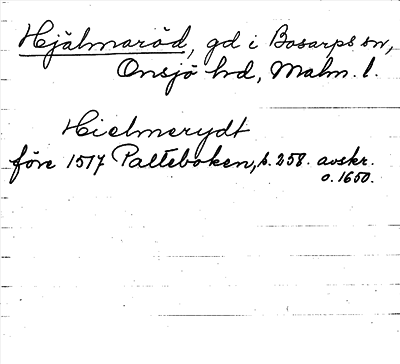 Hjälmaröd, gd i Bosarps sn,
Onsjö hd, Malm. l.
Hielmerydt
före 1517 Palteboken, s. 258. avskr.
o. 1650.